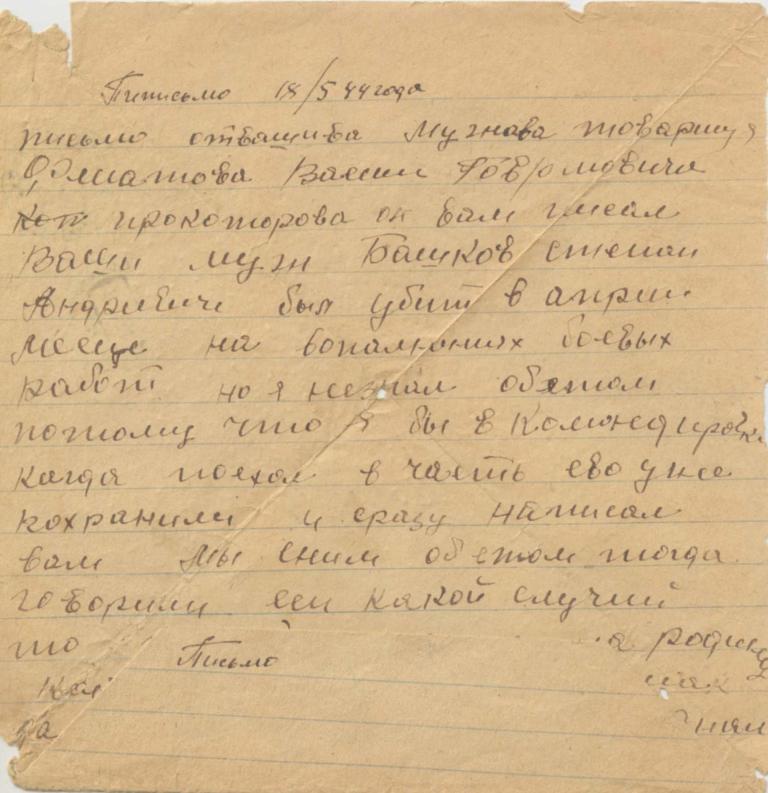 Письмо 18/5 44 года
письмо отвашива Мужнава товарища
Васили
прокоторова он вам писал
Ваши муж Башков степан
Андривичь был убит в апрли
месеце на вопалнониях боевых
работ но я незнал обетом
потому что я бы в Комондировки
кагда поехал в часть ево уже
похранили и сразу написал
вам Мы сним обетом тагда
говорили если какой случий
то Письмо а родин
так
да